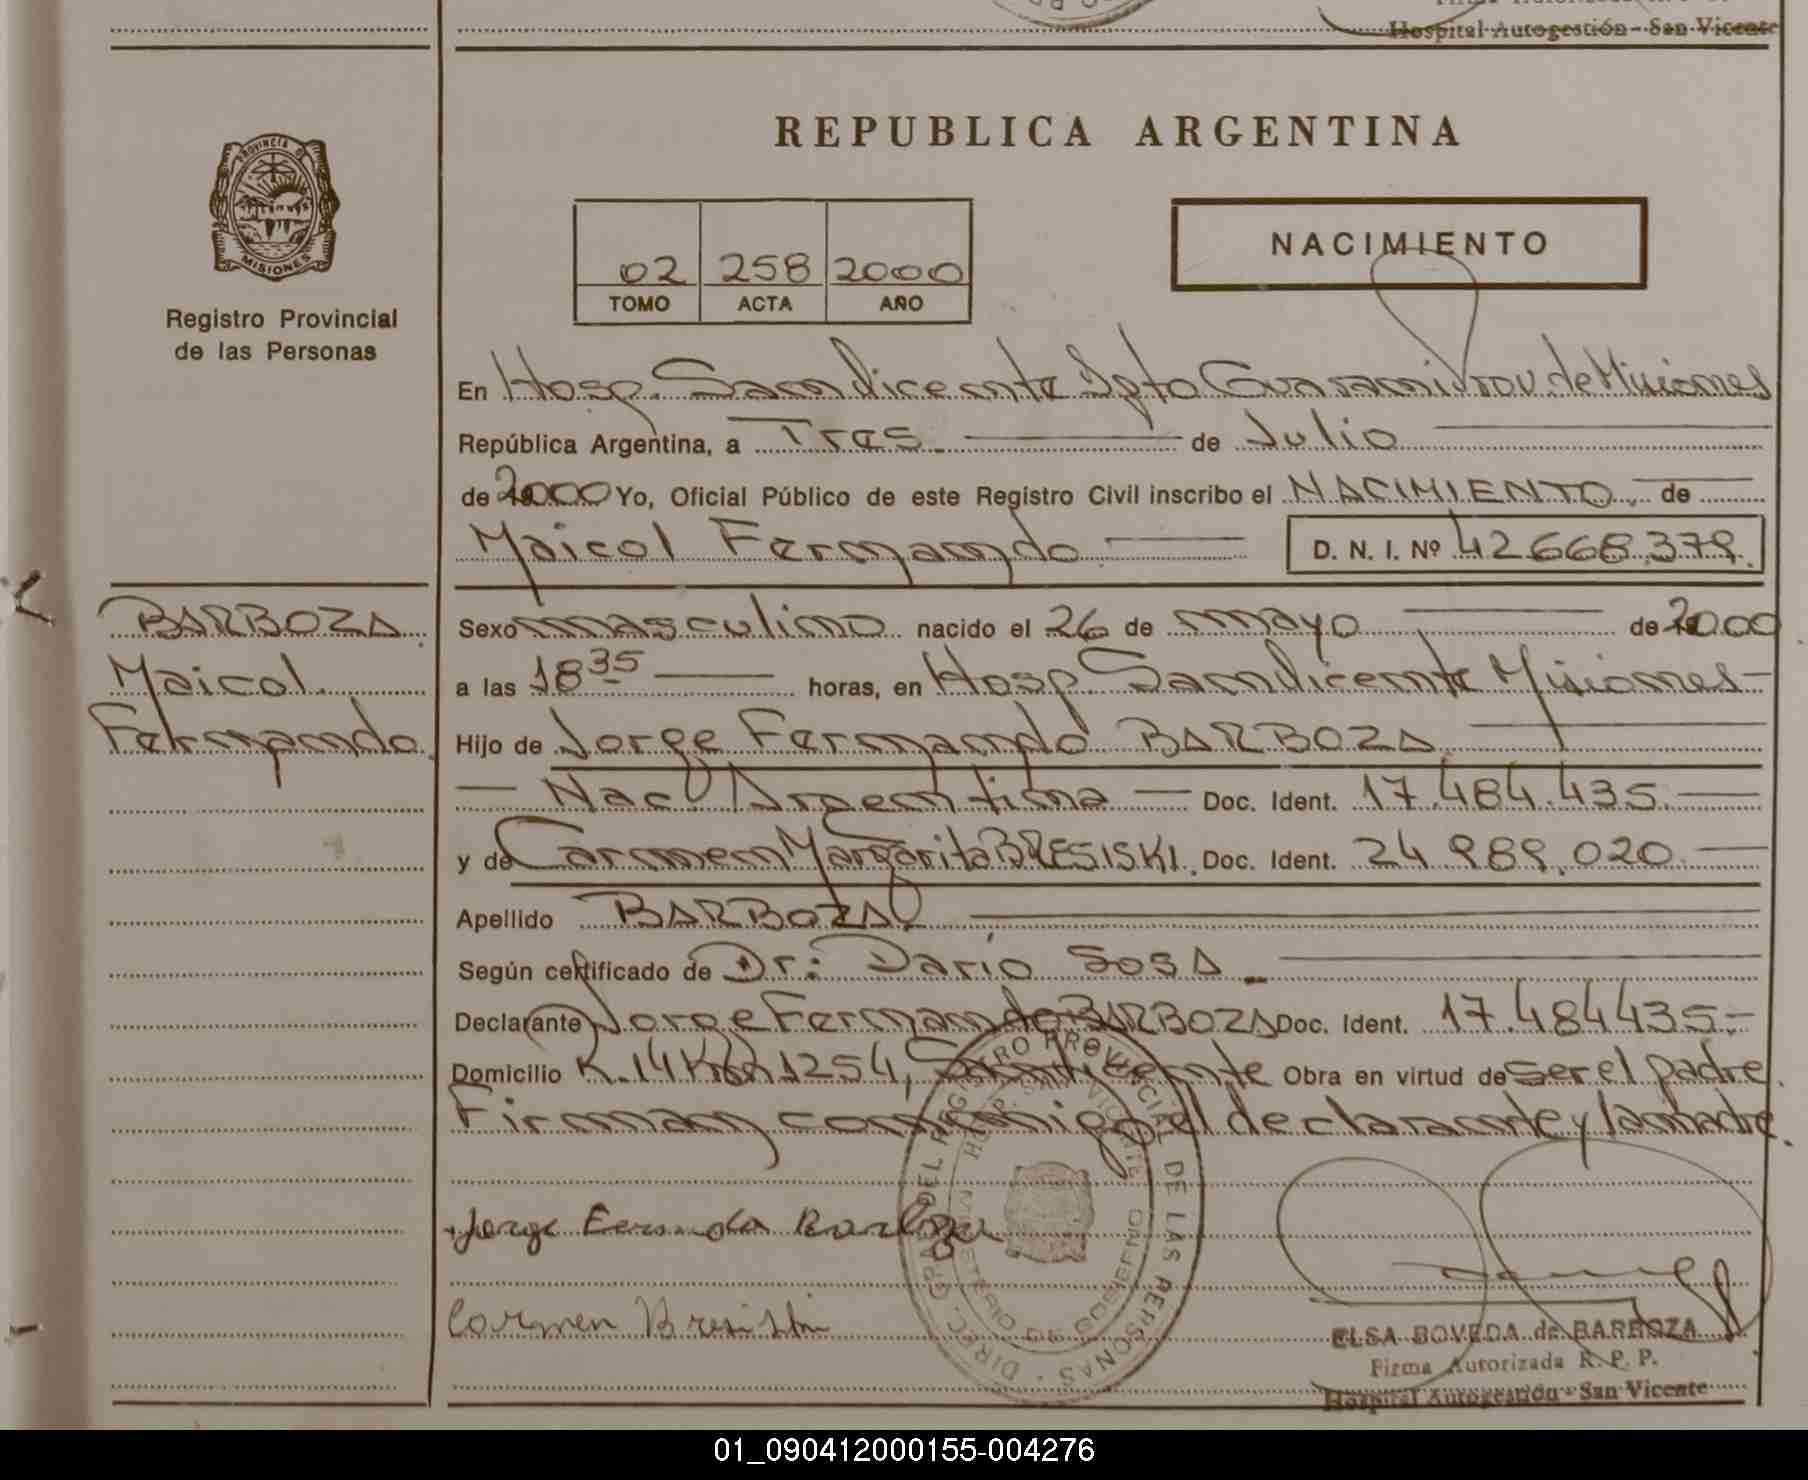 Hospital Autogestión - San Vicente
PROVINCIA DE
MISIONES
Registro Provincial
de las Personas
REPUBLICA ARGENTINA
02 258 2000
TOMO ACTA AÑO
NACIMIENTO
En Hosp. San Vicente Dpto Guarani Prov. de Misiones
República Argentina, a Tres de Julio
de 2000 Yo, Oficial Público de este Registro Civil inscribo el NACIMIENTO de
Maicol Fernando D. N. I. Nº 42668.379.
BARBOZA
Maicol
Fernando
Sexo masculino nacido el 26 de mayo de 2000
a las 18 35 horas, en Hosp. San Vicente Misiones
Hijo de Jorge Fernando BARBOZA
Nac. Argentina Doc. Ident. 17.484.435.
y de Carmen Margarita BRESISKI. Doc. Ident. 24 989.020
Apellido BARBOZA
Según certificado de Dr: Darío Sosa
Declarante Jorge Fernando BARBOZA Doc. Ident. 17.484435.-
Domicilio R.14 Km 1254, San Vicente Obra en virtud de ser el padre.
Firman conmigo el declarante y la madre.
DIREC. GRAL. DEL REGISTRO PROVINCIAL DE LAS PERSONAS
HOSP. SAN VICENTE
MINISTERIO DE GOBIERNO
Jorge Fernando Barboza
Carmen Bresiski
ELSA BOVEDA de BARBOZA
Firma Autorizada R. P. P.
Hospital Autogestión - San Vicente
01_090412000155-004276